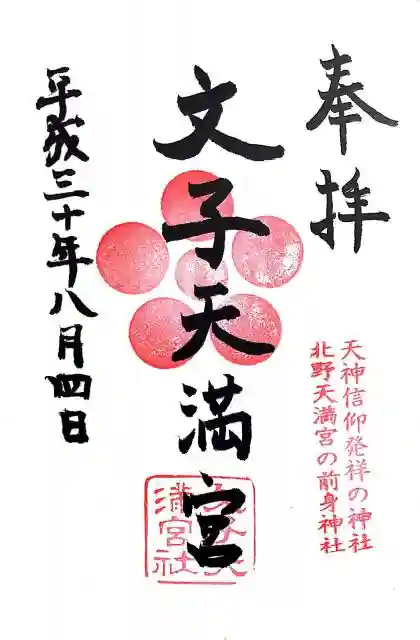 奉拝
天神信仰発祥の神社
北野天満宮の前身神社
文子天満宮
平成三十年八月四日